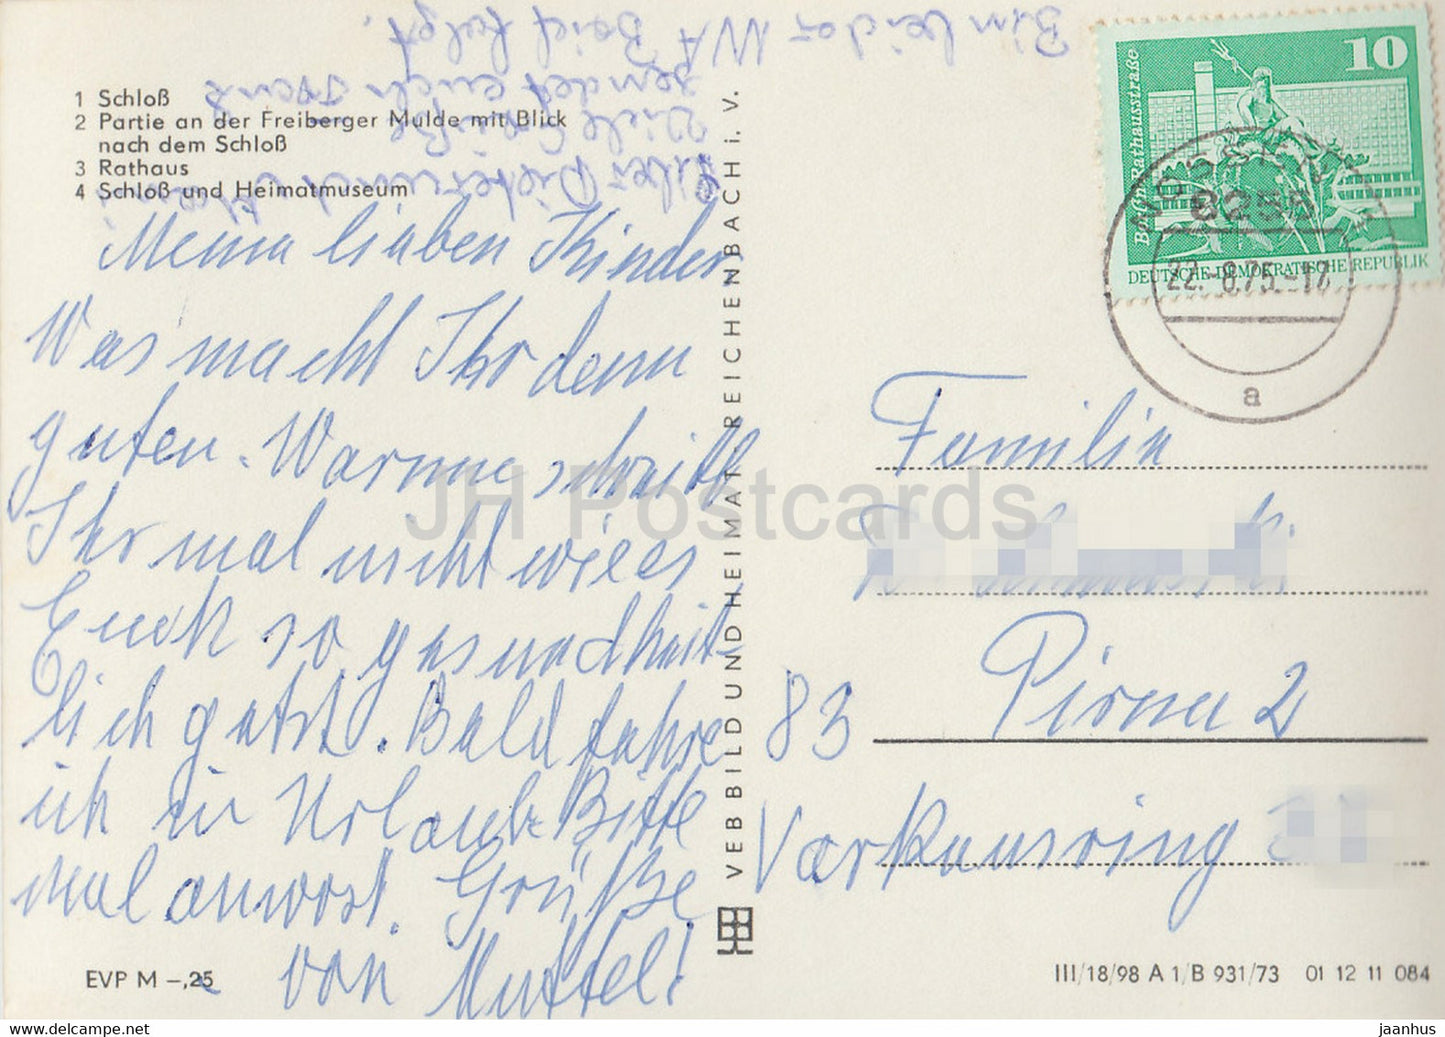 1 Schloß
2 Partie an der Freiberger Mulde mit Blick
nach dem Schloß
3 Rathaus
4 Schloß und Heimatmuseum
sendet euch Frank
Viele Grüße
Meine lieben Kinder
Was macht Ihr denn
guten. Warum schreibt
Ihr mal nicht wie es
Euch so gesundheit-
lich geht. Bald fahre
ich in Urlaub. Bitte
mal anwort. Grüße
von Muttel!
EVP M –,25
VEB BILD UND HEIMAT REICHENBACH i. V.
10
Berlin, Rathausstraße
DEUTSCHE DEMOKRATISCHE REPUBLIK
8255
22.-8.75.-17
a
Familie
83 Pirna 2
Varkausring
III/18/98 A 1/B 931/73 01 12 11 084
JH Postcards
www.delcampe.net
jaanhus